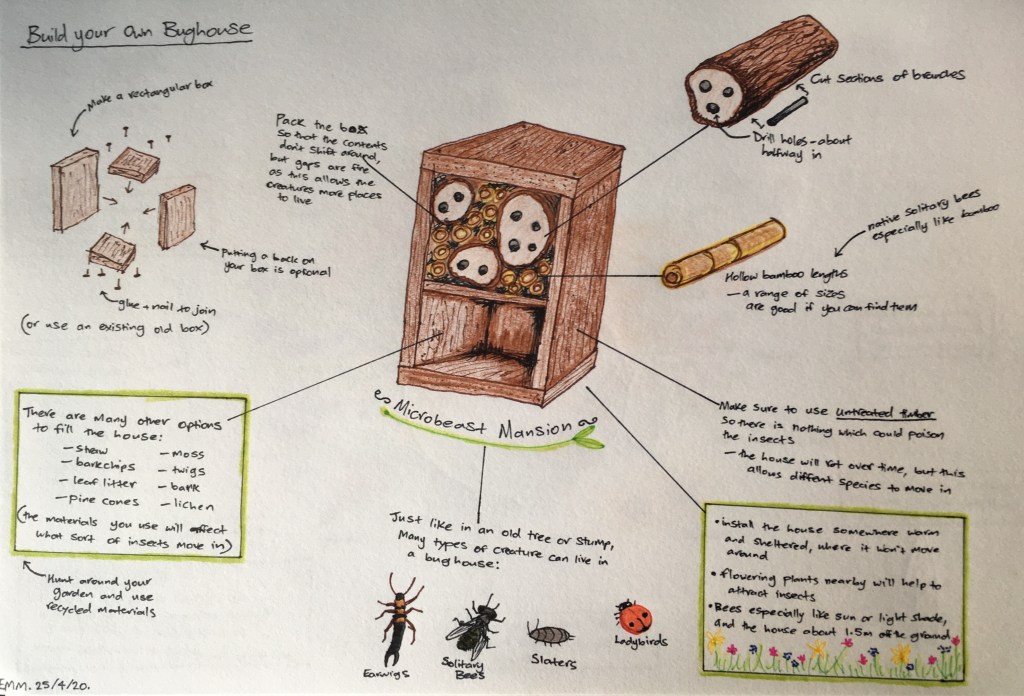 Build your own Bughouse
Make a rectangular box
Putting a back on
your box is optional
glue + nail to join
(or use an existing old box)
Pack the box
so that the contents
don't shift around,
but gaps are fine
as this allows the
creatures more places
to live
Cut sections of branches
Drill holes - about
halfway in
native solitary bees
especially like bamboo
Hollow bamboo lengths
- a range of sizes
are good if you can find them
Microbeast Mansion
There are many other options
to fill the house:
- straw
- moss
- barkchips
- twigs
- leaf litter
- bark
- pine cones
- lichen
(the materials you use will affect
what sort of insects move in)
Hunt around your
garden and use
recycled materials
Make sure to use untreated timber
so there is nothing which could poison
the insects
- the house will rot over time, but this
allows different species to move in
Just like in an old tree or stump,
many types of creature can live in
a bughouse:
Earwigs
Solitary
Bees
Slaters
Ladybirds
• install the house somewhere warm
and sheltered, where it won't move
around
• flowering plants nearby will help to
attract insects
• Bees especially like sun or light shade,
and the house about 1.5m off the ground
EMM. 25/4/20.